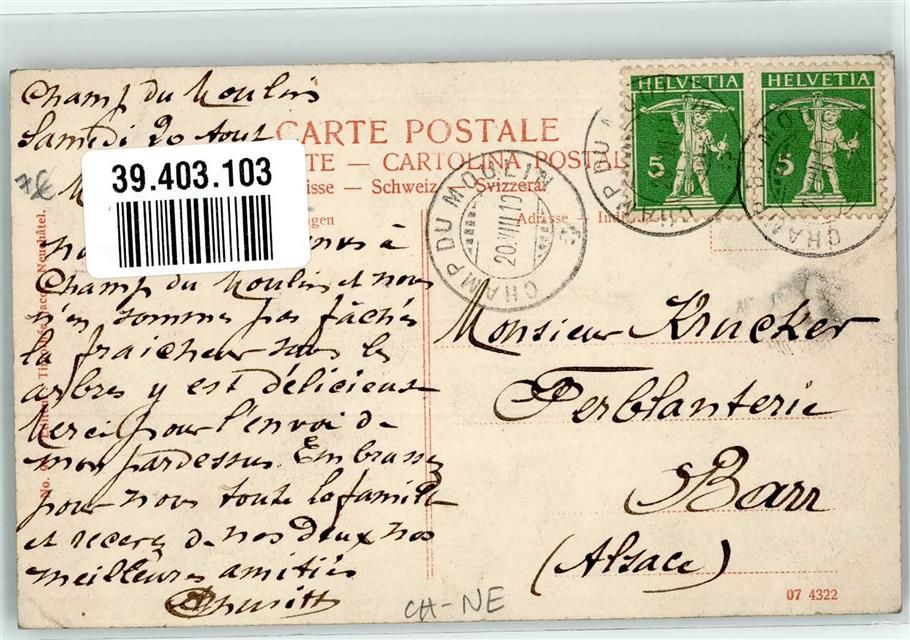 Champ du Moulin
Samedi 20 Aout
CARTE POSTALE
CARTOLINA POSTAL
Schweiz — Svizzera
Adresse
39.403.103
7€
HELVETIA
5
HELVETIA
5
CHAMP DU MOULIN
20.VIII.10
à
Champ du Moulin et nous
n'en sommes pas fâchés
la fraicheur sous les
arbres y est délicieuse
Merci pour l'envoi de
mon pardessus. Embrassez
pour nous toute la famille
et recevez de nos deux nos
meilleures amitiés
Monsieur Krucker
Ferblanterie
Barr
(Alsace)
Neuchâtel.
CH-NE
07 4322